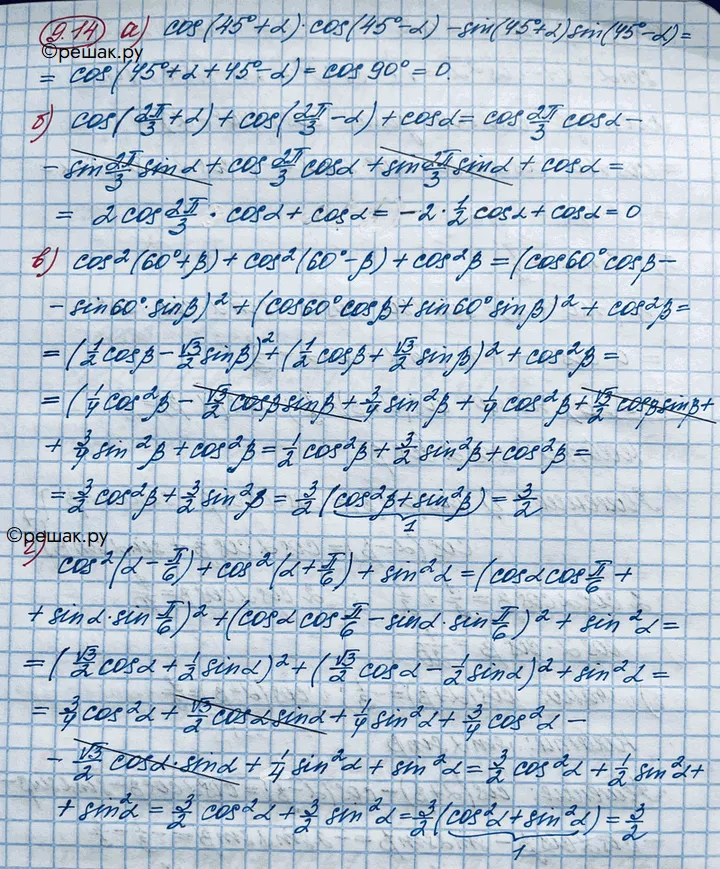 9.14 а) cos(45°+α)·cos(45°-α) - sin(45°+α)sin(45°-α) =
©решак.ру
= cos(45°+α+45°-α) = cos 90° = 0.
б) cos(2π/3+α) + cos(2π/3-α) + cosα = cos 2π/3 cosα -
- sin 2π/3 sinα + cos 2π/3 cosα + sin 2π/3 sinα + cosα =
= 2cos 2π/3 · cosα + cosα = -2·1/2 cosα + cosα = 0
в) cos²(60°+β) + cos²(60°-β) + cos²β = (cos60°cosβ -
- sin60°·sinβ)² + (cos60°cosβ + sin60°sinβ)² + cos²β =
= (1/2 cosβ - √3/2 sinβ)² + (1/2 cosβ + √3/2 sinβ)² + cos²β =
= (1/4 cos²β - √3/2 cosβ sinβ + 3/4 sin²β + 1/4 cos²β + √3/2 cosβ sinβ +
+ 3/4 sin²β + cos²β = 1/2 cos²β + 3/2 sin²β + cos²β =
= 3/2 cos²β + 3/2 sin²β = 3/2 (cos²β + sin²β) = 3/2
1
©решак.ру
г) cos²(α - π/6) + cos²(α + π/6) + sin²α = (cosα cos π/6 +
+ sinα·sin π/6)² + (cosα cos π/6 - sinα·sin π/6)² + sin²α =
= (√3/2 cosα + 1/2 sinα)² + (√3/2 cosα - 1/2 sinα)² + sin²α =
= 3/4 cos²α + √3/2 cosα sinα + 1/4 sin²α + 3/4 cos²α -
- √3/2 cosα·sinα + 1/4 sin²α + sin²α = 3/2 cos²α + 1/2 sin²α +
+ sin²α = 3/2 cos²α + 3/2 sin²α = 3/2 (cos²α + sin²α) = 3/2
1